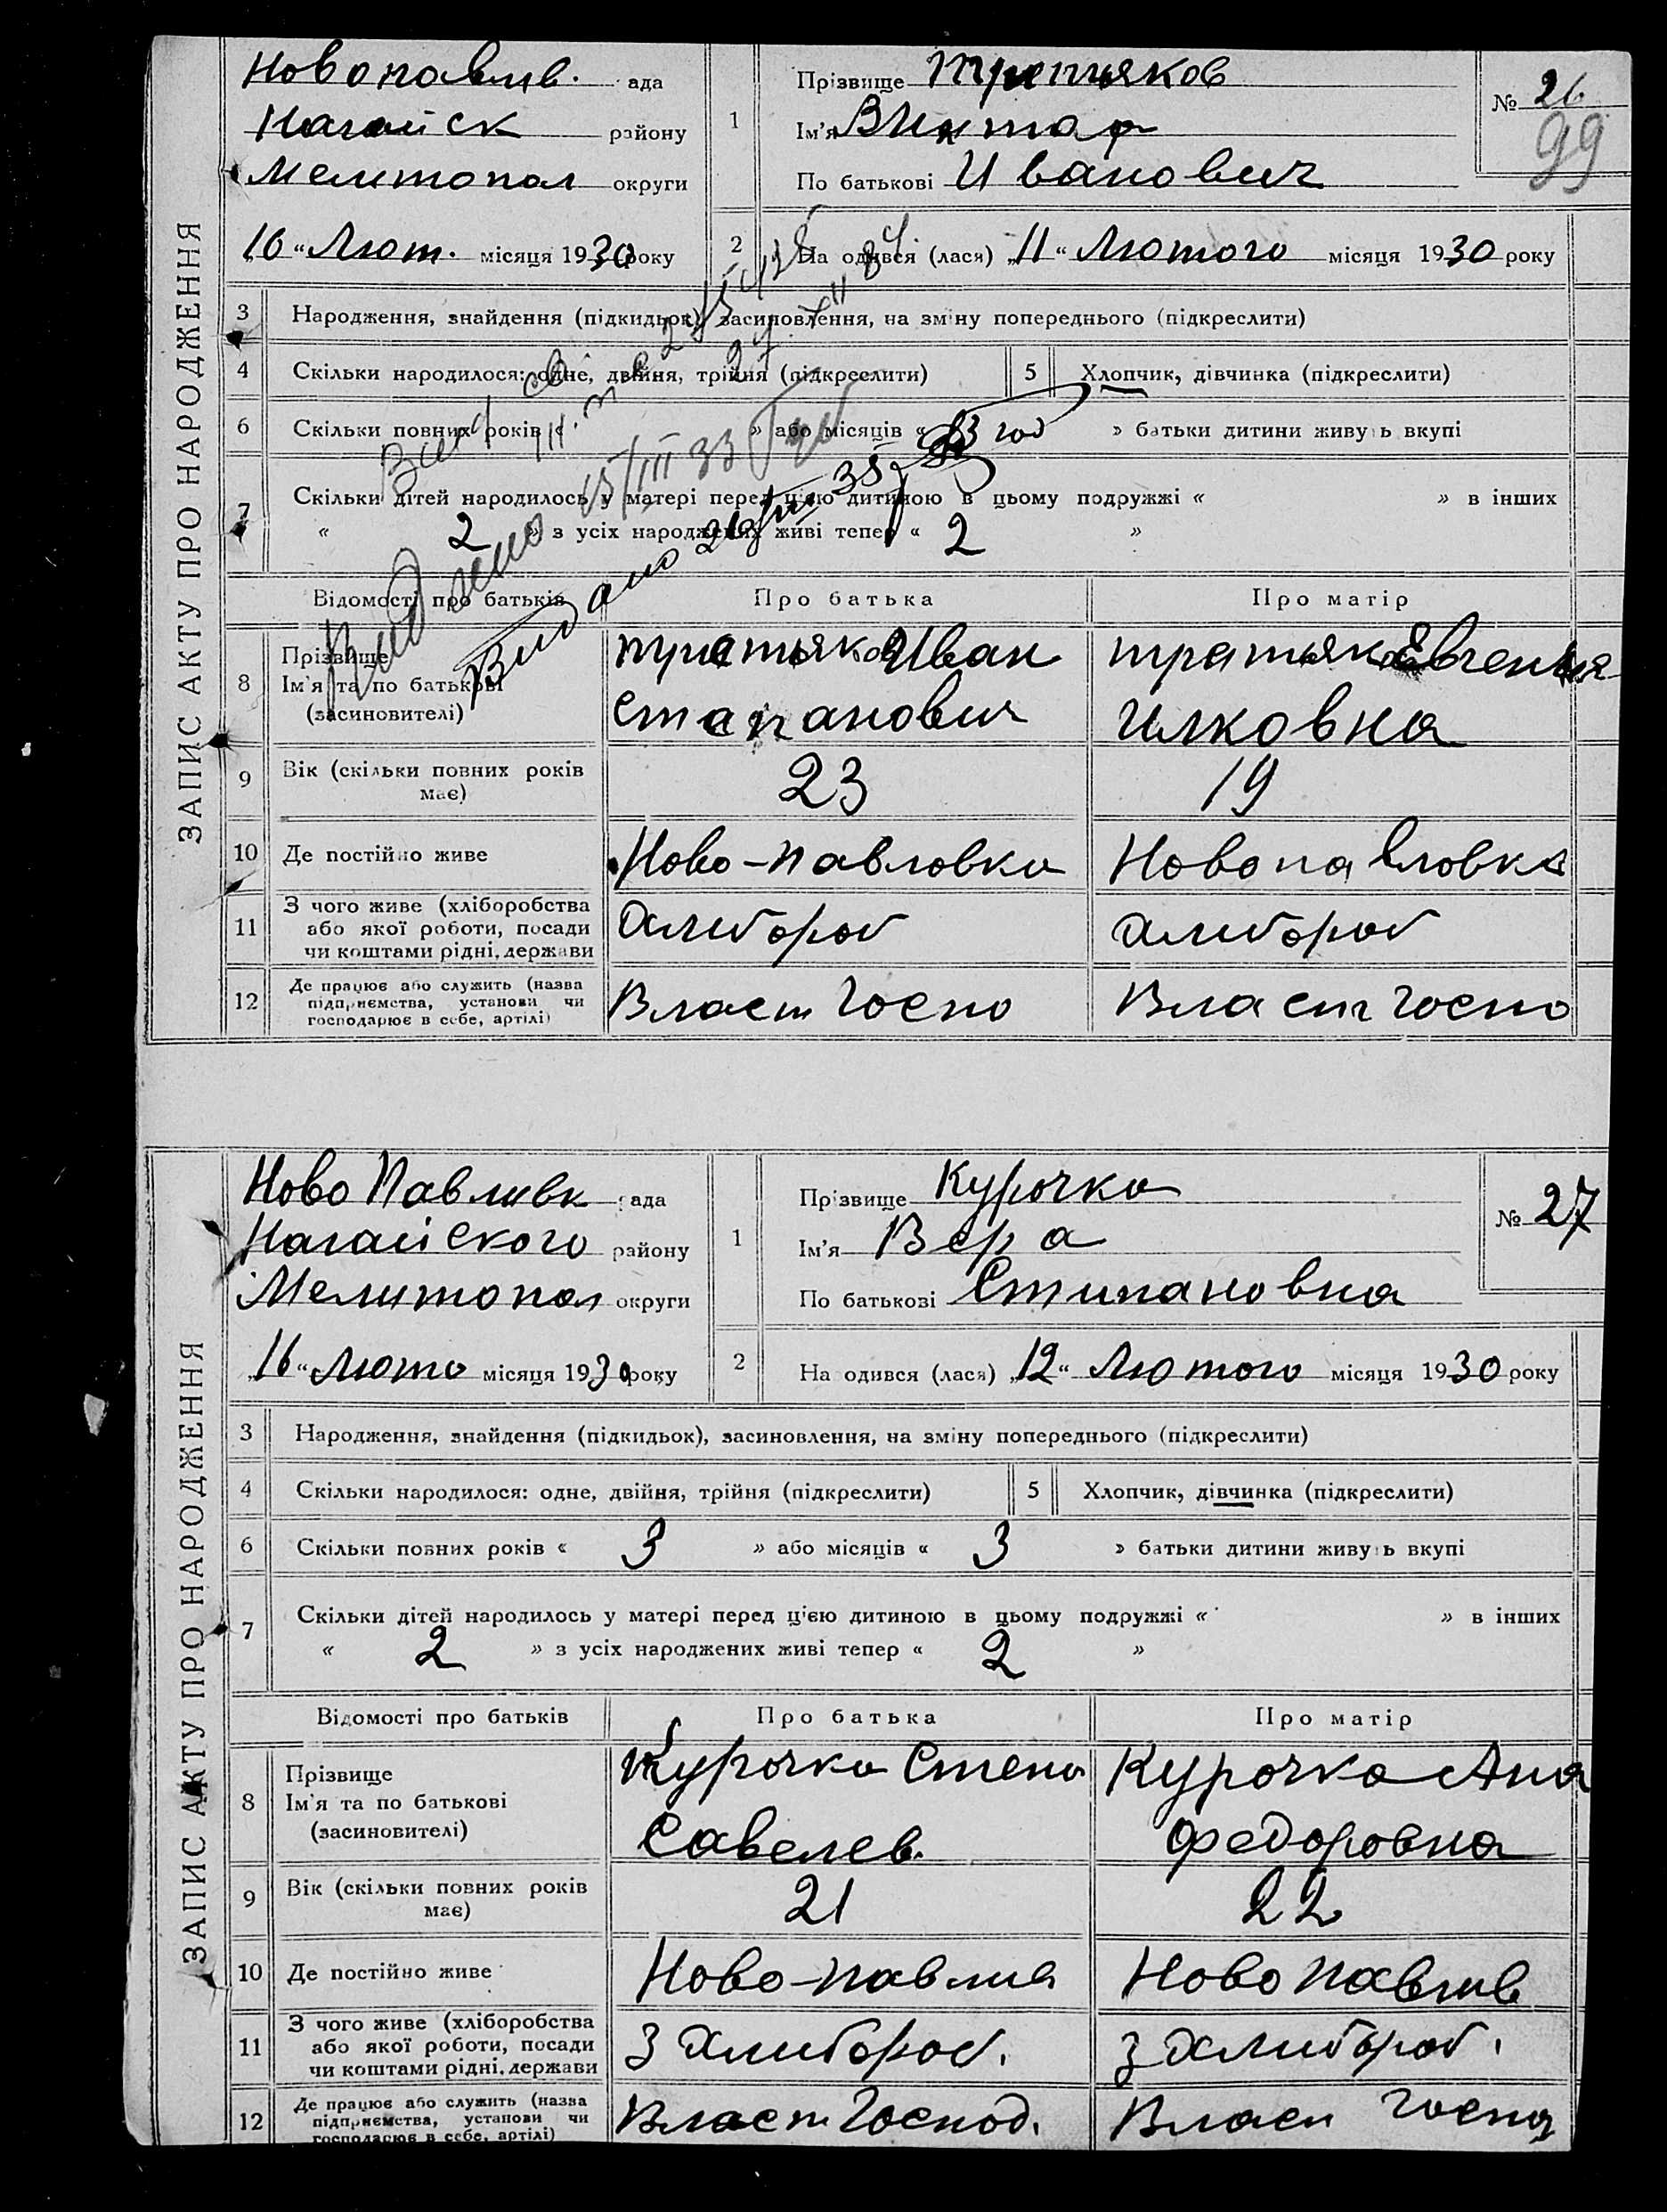 ЗАПИС АКТУ ПРО НАРОДЖЕННЯ
Новопавлив. рада
Нагайск району
Мелитопол округи
„16“ Лют. місяця 1930 року
1 Прізвище Третьяков
Ім'я Виктар
По батькові Иванович
№ 26
99
2 На одився (лася) „11“ Лютого місяця 1930 року
3 Народження, знайдення (підкидьок), засиновлення, на зміну попереднього (підкреслити)
4 Скільки народилося: одне, двійня, трійня (підкреслити)
5 Хлопчик, дівчинка (підкреслити)
6 Скільки повних років « » або місяців « 3 год » батьки дитини живуть вкупі
7 Скільки дітей народилось у матері перед цією дитиною в цьому подружжі « » в інших
« 2 » з усіх народжених живі тепер « 2 »
Видано 15/III 33
Видано
Відомості про батьків Про батька Про матір
8 Прізвище
Ім'я та по батькові
(засновителі)
Третьяков Иван
Степанович
Третьяков Евгения
Илковна
9 Вік (скільки повних років має) 23 19
10 Де постійно живе Ново-Павловка Новопавловка
11 З чого живе (хліборобства
або якої роботи, посади
чи коштами рідні, держави
Хлибороб Хлибороб
12 Де працює або служить (назва
підприємства, установи чи
господарює в себе, артілі)
Власт Госпо Власт Госпо
ЗАПИС АКТУ ПРО НАРОДЖЕННЯ
Ново Павливк рада
Нагайского району
Мелитопол округи
„16“ Люто місяця 1930 року
1 Прізвище Курочка
Ім'я Вера
По батькові Стипановна
№ 27
2 На одився (лася) „12“ Лютого місяця 1930 року
3 Народження, знайдення (підкидьок), засиновлення, на зміну попереднього (підкреслити)
4 Скільки народилося: одне, двійня, трійня (підкреслити)
5 Хлопчик, дівчинка (підкреслити)
6 Скільки повних років « 3 » або місяців « 3 » батьки дитини живуть вкупі
7 Скільки дітей народилось у матері перед цією дитиною в цьому подружжі « » в інших
« 2 » з усіх народжених живі тепер « 2 »
Відомості про батьків Про батька Про матір
8 Прізвище
Ім'я та по батькові
(засиновителі)
Курочка Степа
Савелев.
Курочка Аня
Федоровна
9 Вік (скільки повних років має) 21 22
10 Де постійно живе Ново-павлив Ново Павлив
11 З чого живе (хліборобства
або якої роботи, посади
чи коштами рідні, держави
З Хлибороб. З Хлибороб.
12 Де працює або служить (назва
підприємства, установи чи
господарює в себе, артілі)
Власт Господ. Власт Госпо